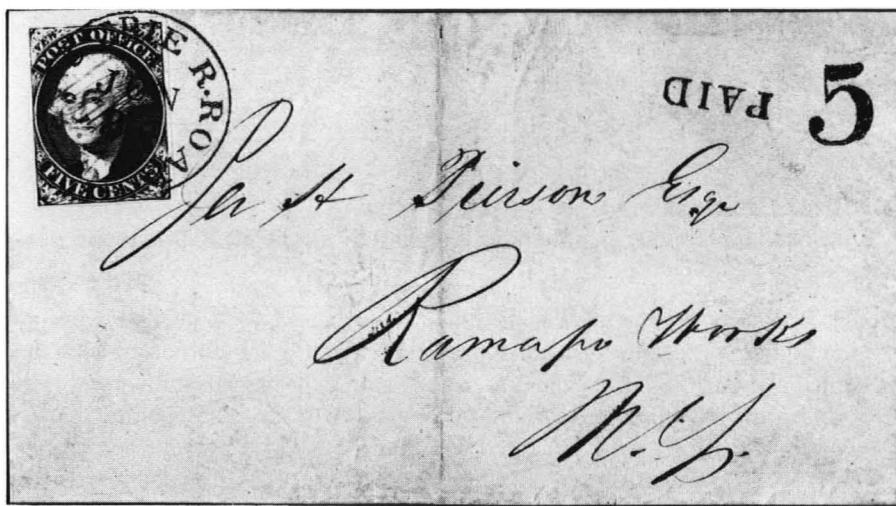 POST OFFICE
FIVE CENTS
ERIE R. ROA
PAID 5
H Peirson Esqr
Ramapo Works
N.Y.